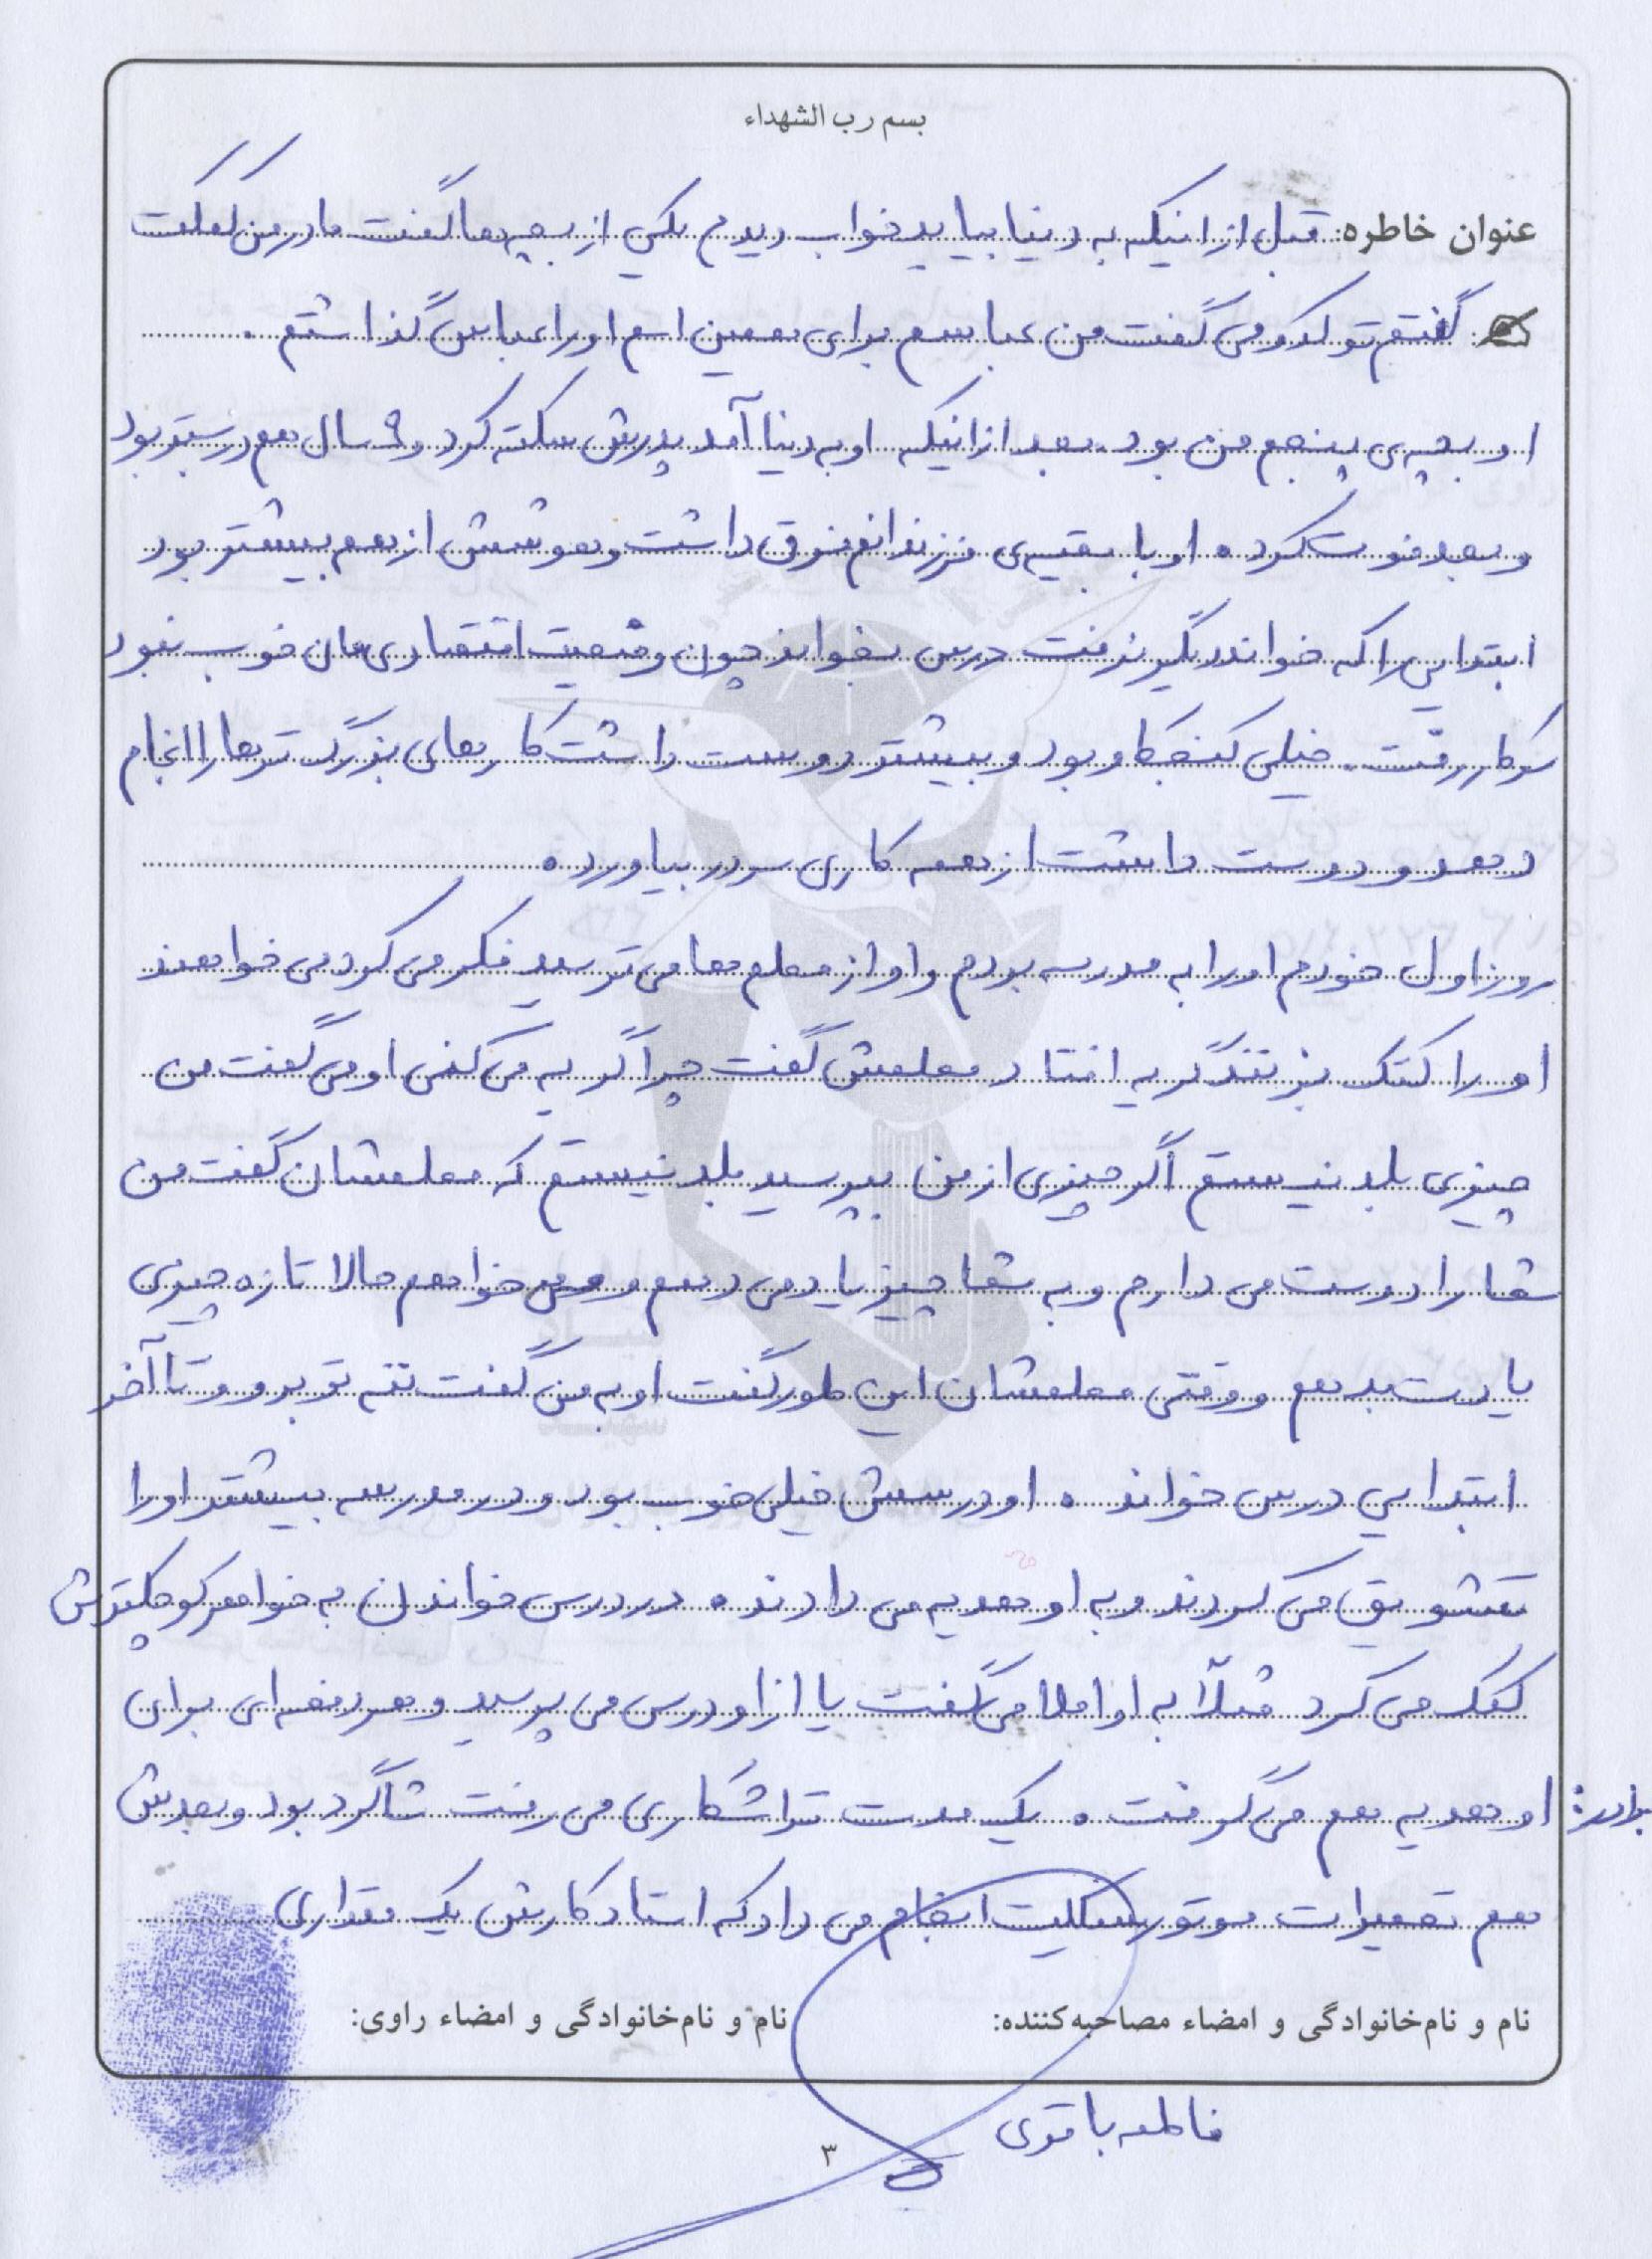 بسم رب الشهداء
عنوان خاطره: قبل از اینکه به دنیا بیاید خواب دیدم یکی از بچه ها گفت مادر من
گفتم تو که و می گفت من عباسم برای همین اسم او را عباس گذاشتم .
او بچه ی پنجم من بود . بعد از اینکه او به دنیا آمد پدرش سکته کرد و ۹ سال هم در بستر بود
و بعد فوت کرد . او با بقیه ی فرزندانم فرق داشت و هوشش از همه بیشتر بود
ابتدایی را که خواند دیگر نرفت درس بخواند چون وضعیت اقتصادی مان خوب نبود
سر کار رفت . خیلی کنجکاو بود و بیشتر دوست داشت کارهای بزرگ تر ها را انجام
دهد و دوست داشت از همه کاری سر در بیاورد .
روز اول خودم او را به مدرسه بردم و او از معلم ها می ترسید فکر می کرد می خواهند
او را کتک بزنند گریه افتاد معلمش گفت چرا گریه می کنی او می گفت من
چیزی بلد نیستم اگر چیزی از من بپرسید بلد نیستم که معلمشان گفت من
شما را دوست می دارم و به شما چیز یاد می دهم و می خواهم حالا تازه چیزی
یادت بدهم و وقتی معلمشان این طور گفت او به من گفت ننه تو برو و تا آخر
ابتدایی درس خواند . او درسش خیلی خوب بود و در مدرسه بیشتر او را
تشویق می کردند و به او هدیه می دادند . در درس خواندن به خواهر کوچکترش
کمک می کرد مثلاً به او املا می گفت یا از او درس می پرسید و هر دفعه ای برای
او هدیه هم می گرفت . یک مدت تراشکاری می رفت شاگرد بود و بعدش
برادر:
هم تعمیرات موتورسیکلت انجام می داد که استاد کارش یک مقداری
نام و نام‌خانوادگی و امضاء مصاحبه‌کننده:
نام و نام‌خانوادگی و امضاء راوی:
فاطمه باقری
۳